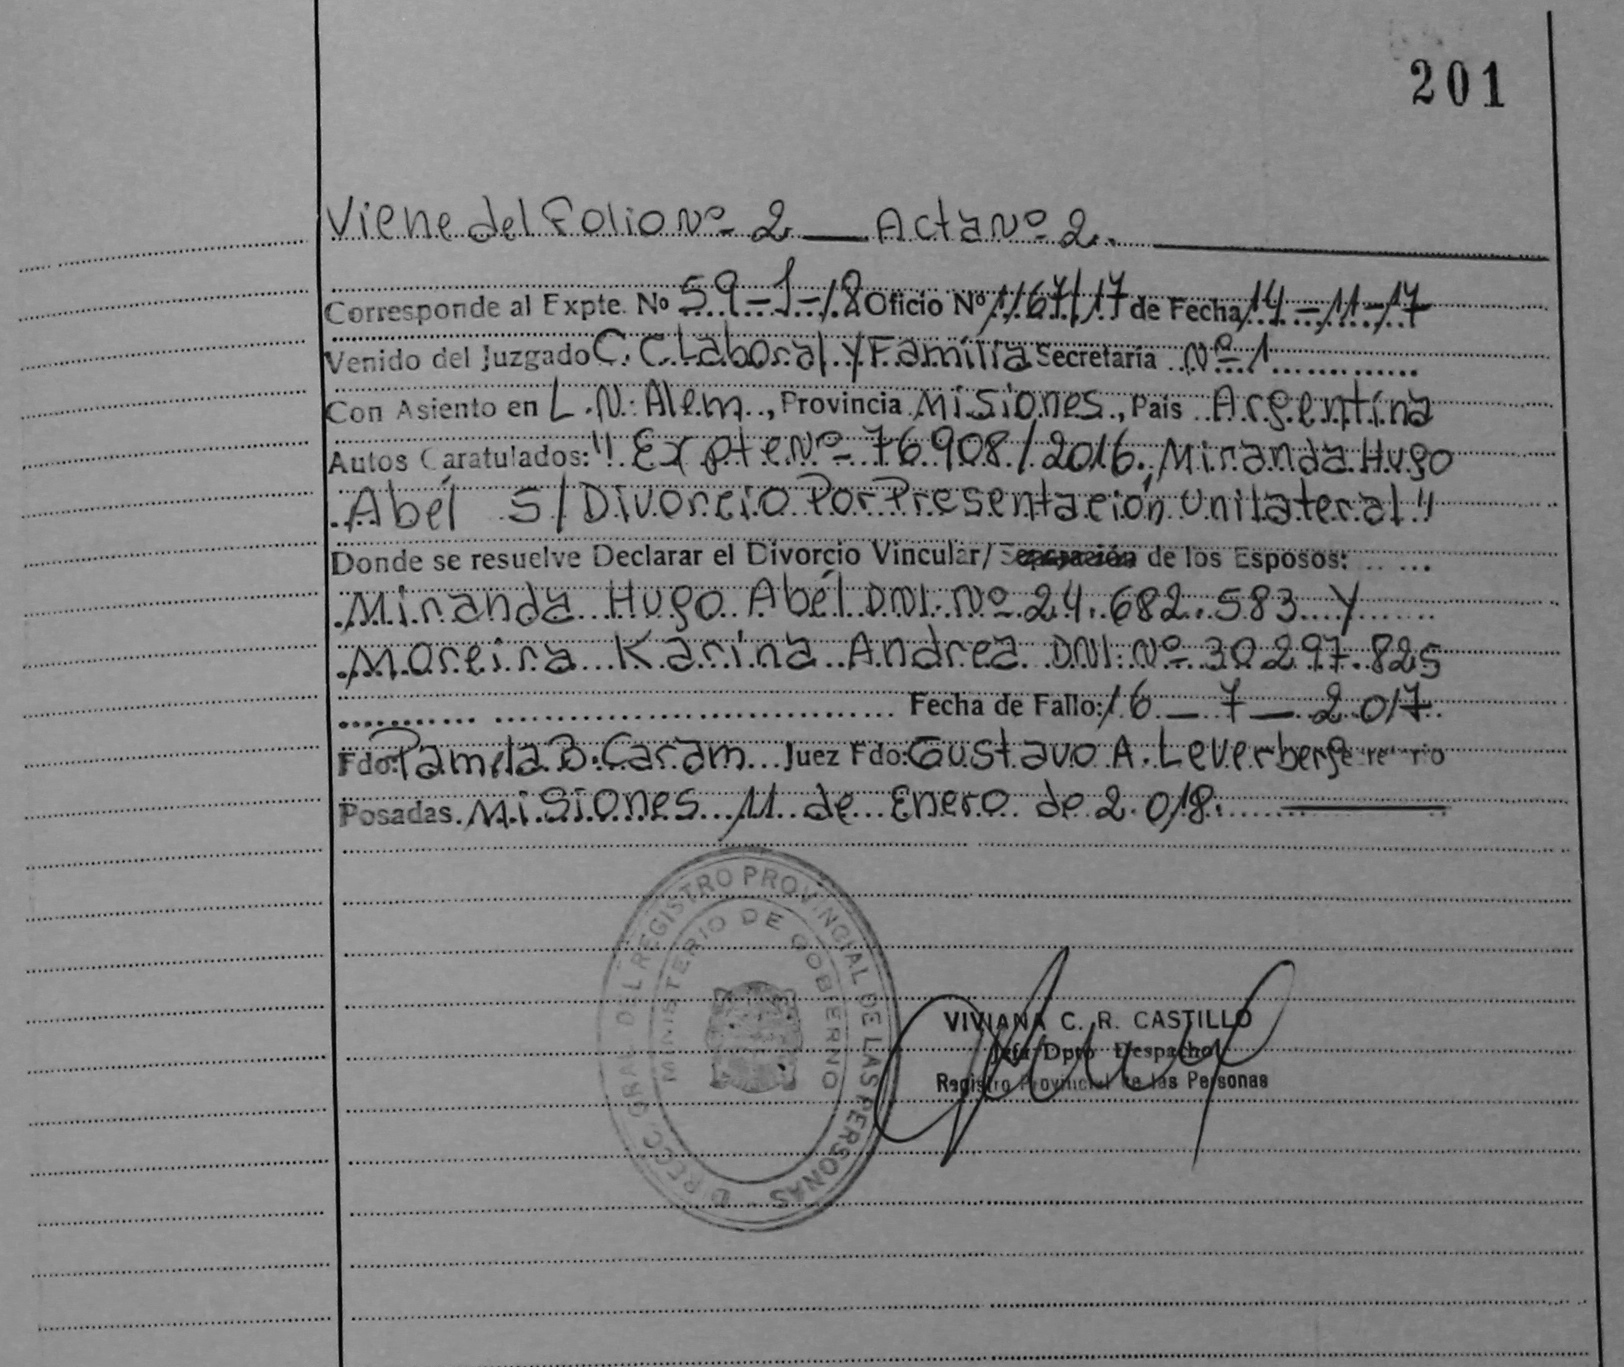 201
Viene del Folio Nº 2 — Acta Nº 2.
Corresponde al Expte. Nº 59-1-18 Oficio Nº 1167/17 de Fecha 14-11-17
Venido del Juzgado C. C Laboral y Familia Secretaría Nº 1
Con Asiento en L. N. Alem, Provincia Misiones, País Argentina
Autos Caratulados: "Expte Nº 76908/2016. Miranda Hugo
Abél S/ Divorcio Por Presentación Unilateral"
Donde se resuelve Declarar el Divorcio Vincular/ Separación de los Esposos:
Miranda Hugo Abél DNI. Nº 24.682.583 y
Moreira Karina Andrea DNI. Nº 30297.825
Fecha de Fallo: 16-7-2017.
Fdo: Pamela B. Caram Juez Fdo: Gustavo A. Leverberg Secretario
Posadas. Misiones 11 de Enero de 2.018.
DIRECC. GRAL. DEL REGISTRO PROVINCIAL DE LAS PERSONAS
MINISTERIO DE GOBIERNO
VIVIANA C. R. CASTILLO
Jefa Dpto Despacho
Registro Provincial de las Personas